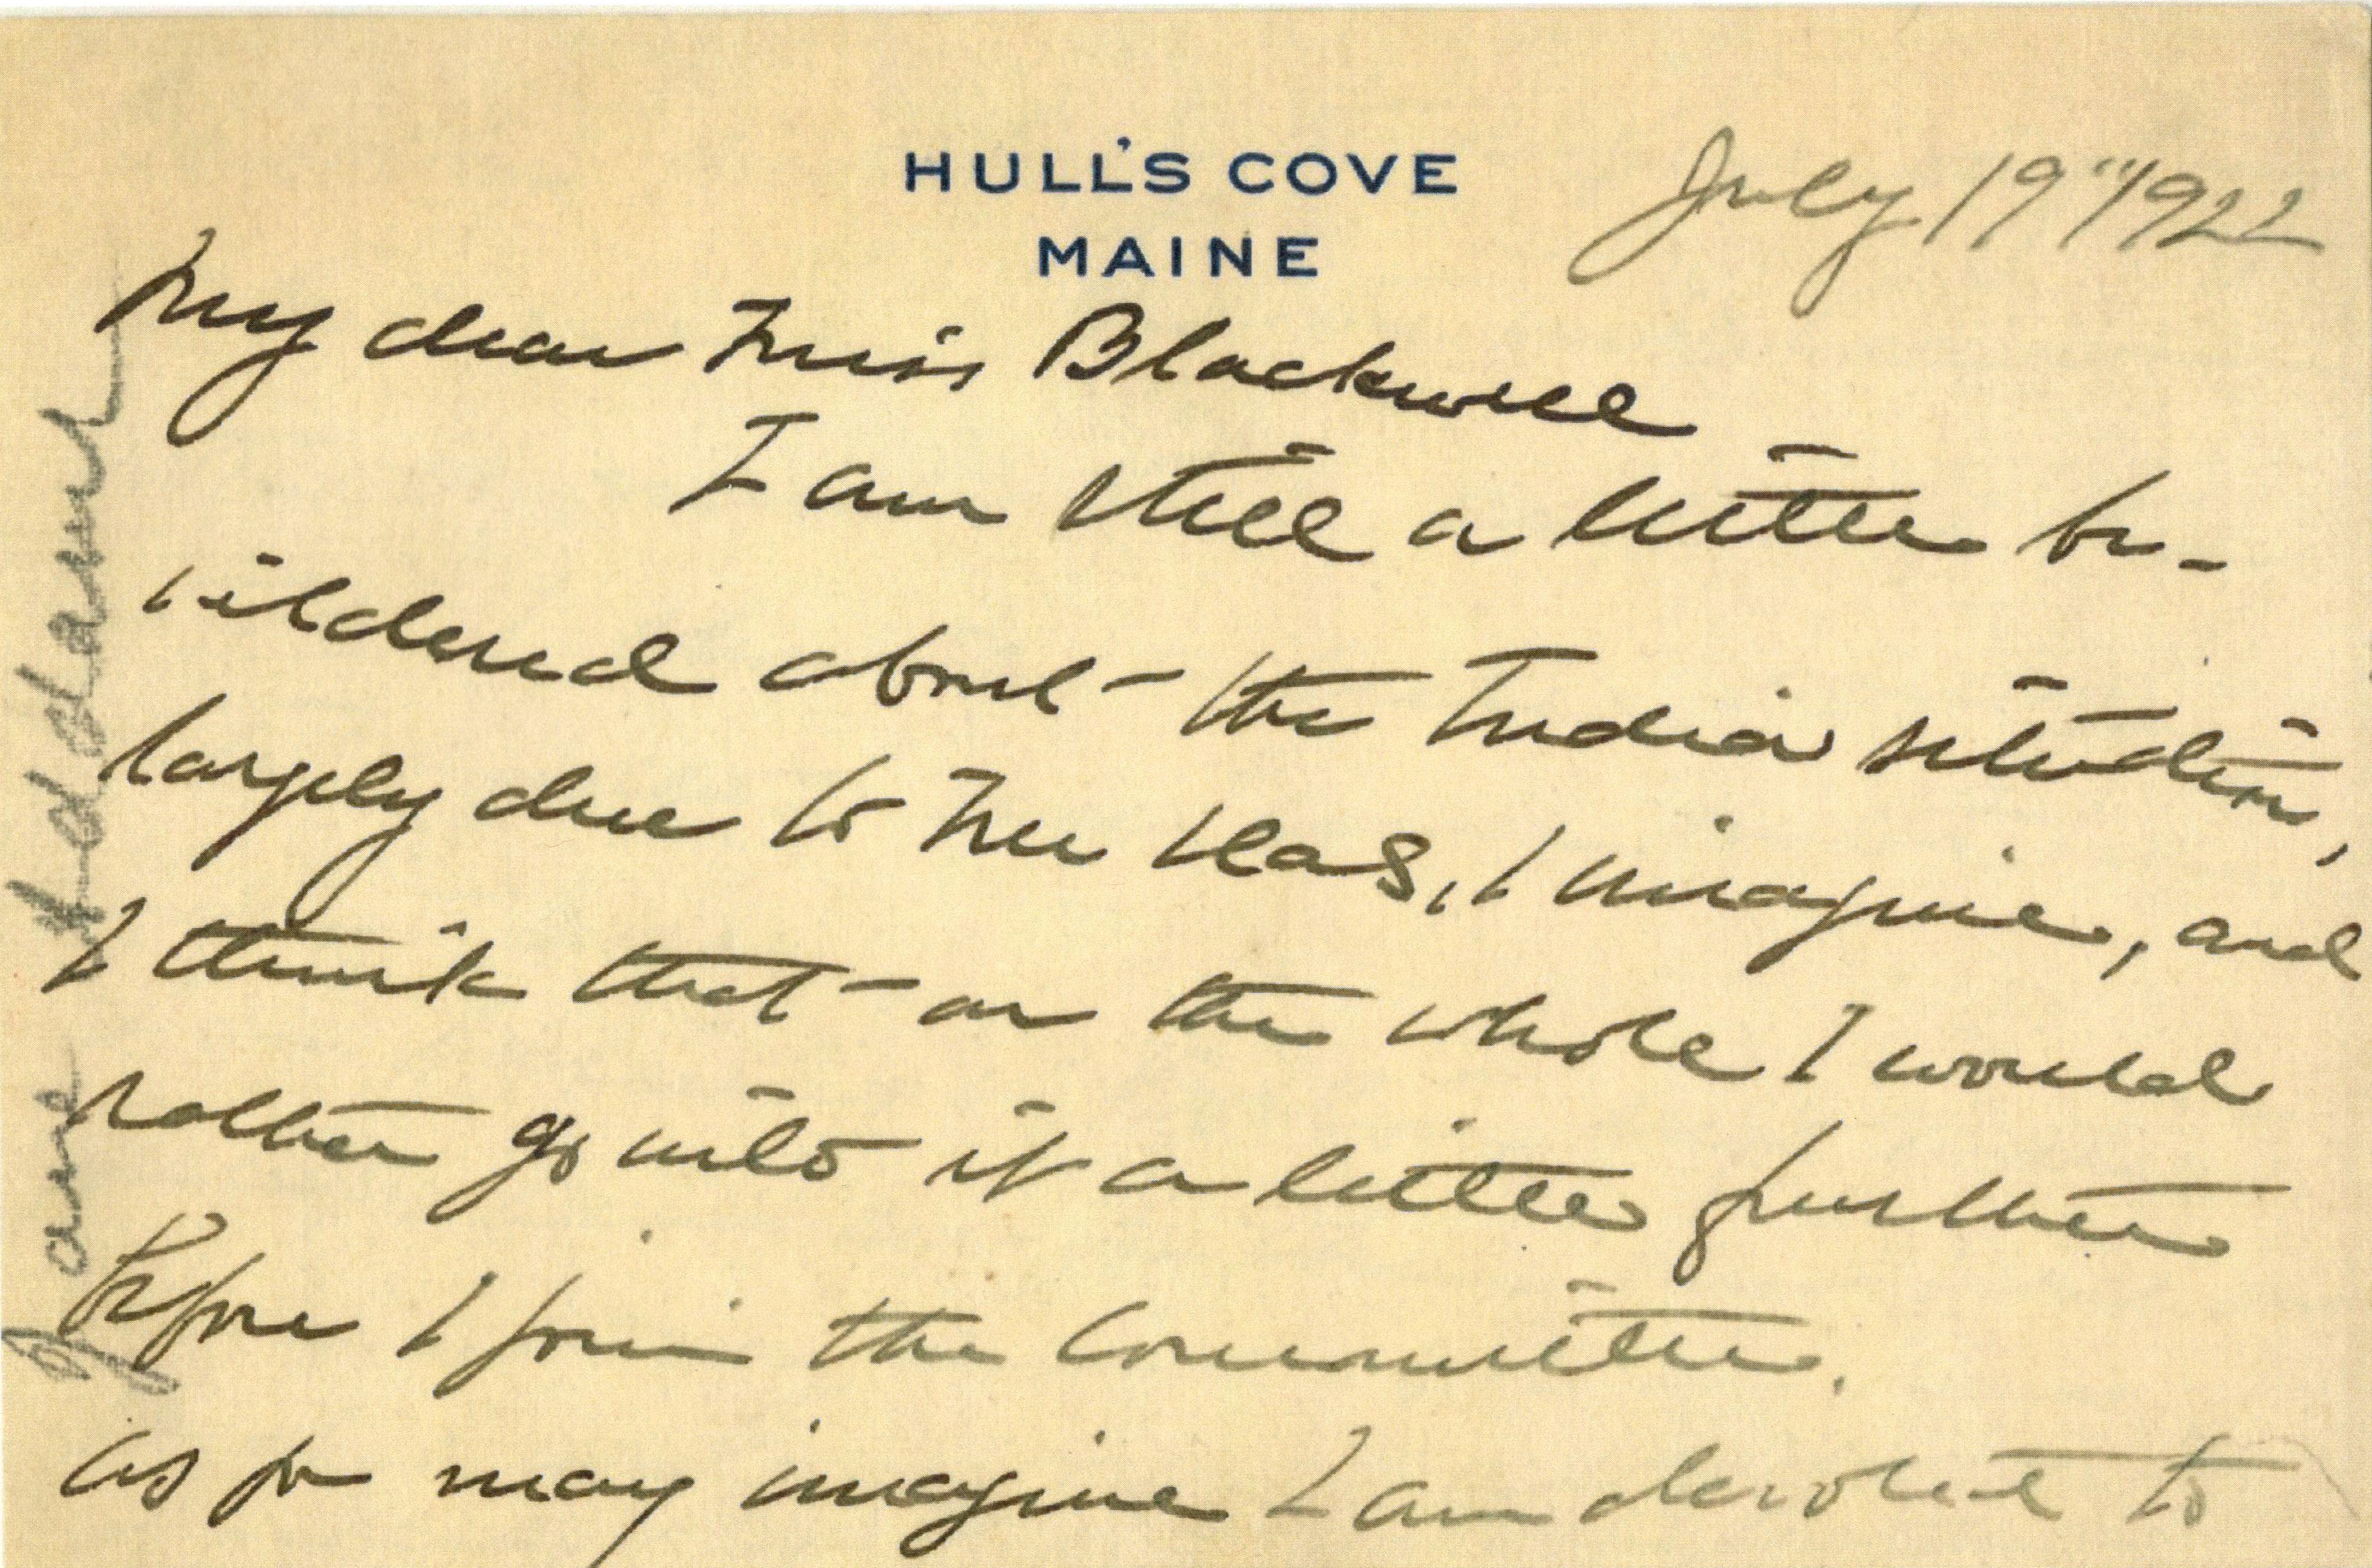 HULL'S COVE
MAINE
July 19" 1922
My dear Miss Blackwell
I am still a little be-
wildered about the India situation,
largely due to Mrs , I imagine, and
I think that on the whole I would
rather go into it a little further
before I join the Committee.
As you may imagine I am devoted to
Jane Addams